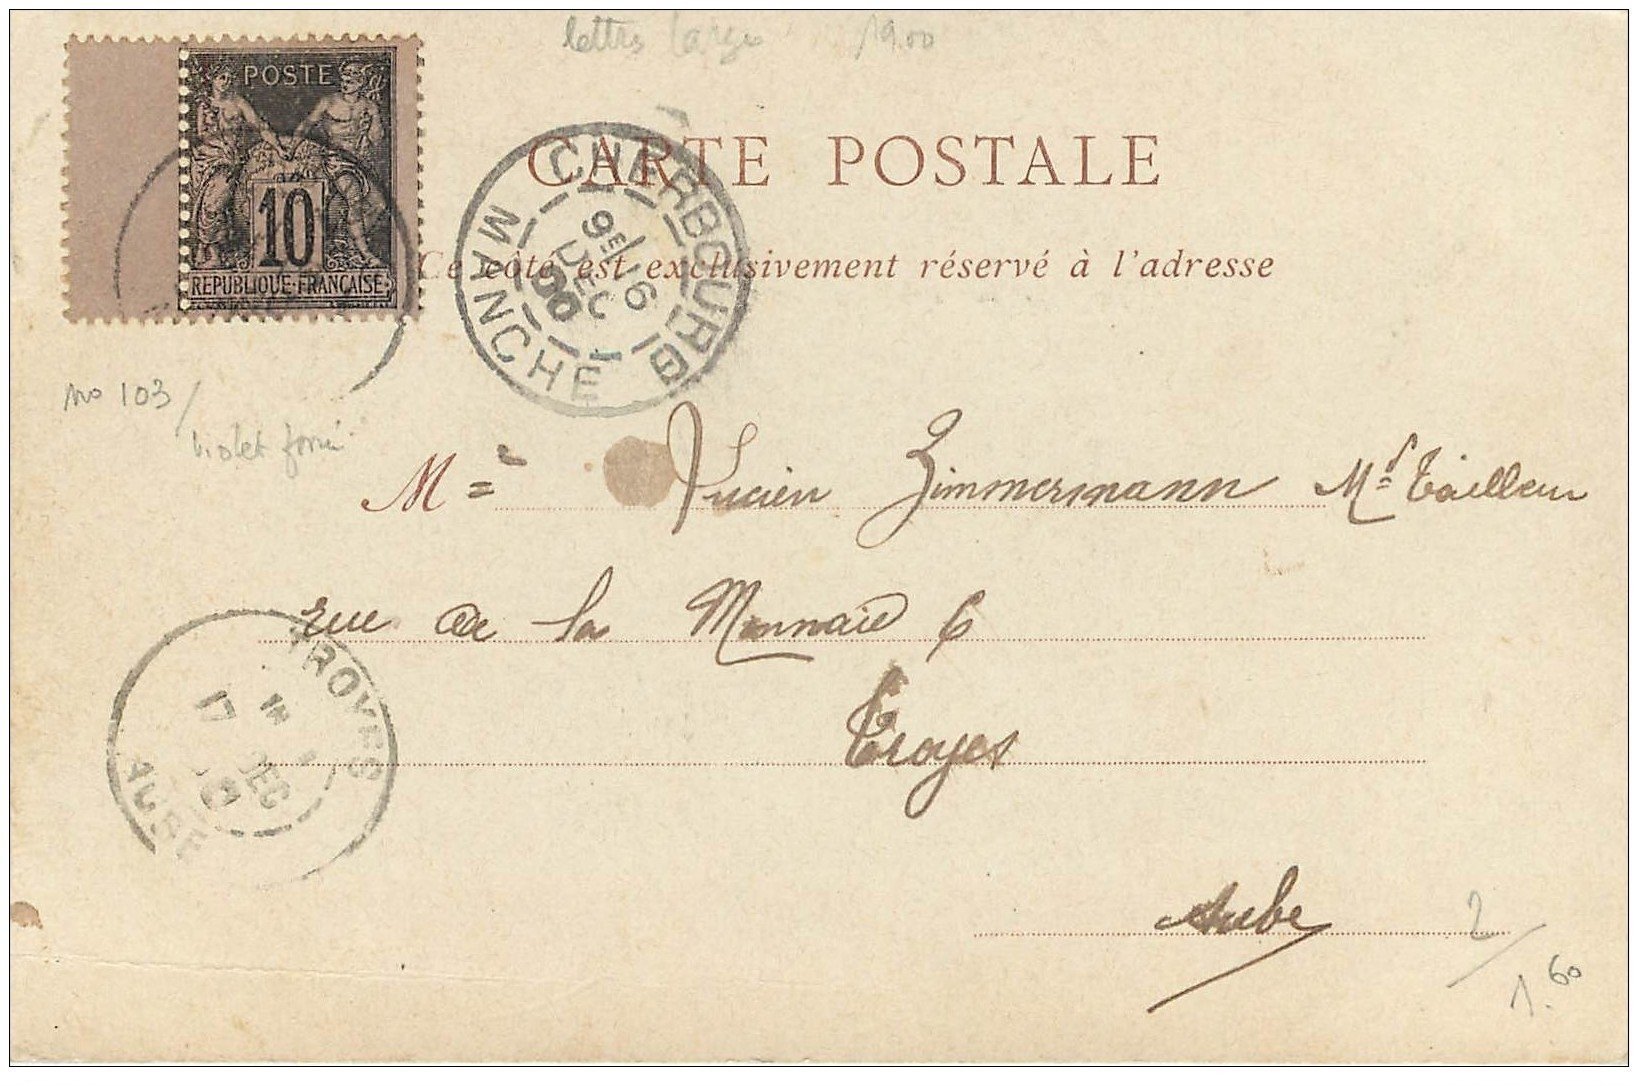 lettres larges 19.00
POSTE
10
REPUBLIQUE FRANÇAISE
CARTE POSTALE
Ce côté est exclusivement réservé à l'adresse
CHERBOURG
9E 16
DEC
00
MANCHE
no 103/
violet foncé
M= Lucien Zimmermann Md Tailleur
rue de la Monnaie 6
Troyes
Aube
TROYES
1E
17 DEC
00
AUBE
2/
1.60